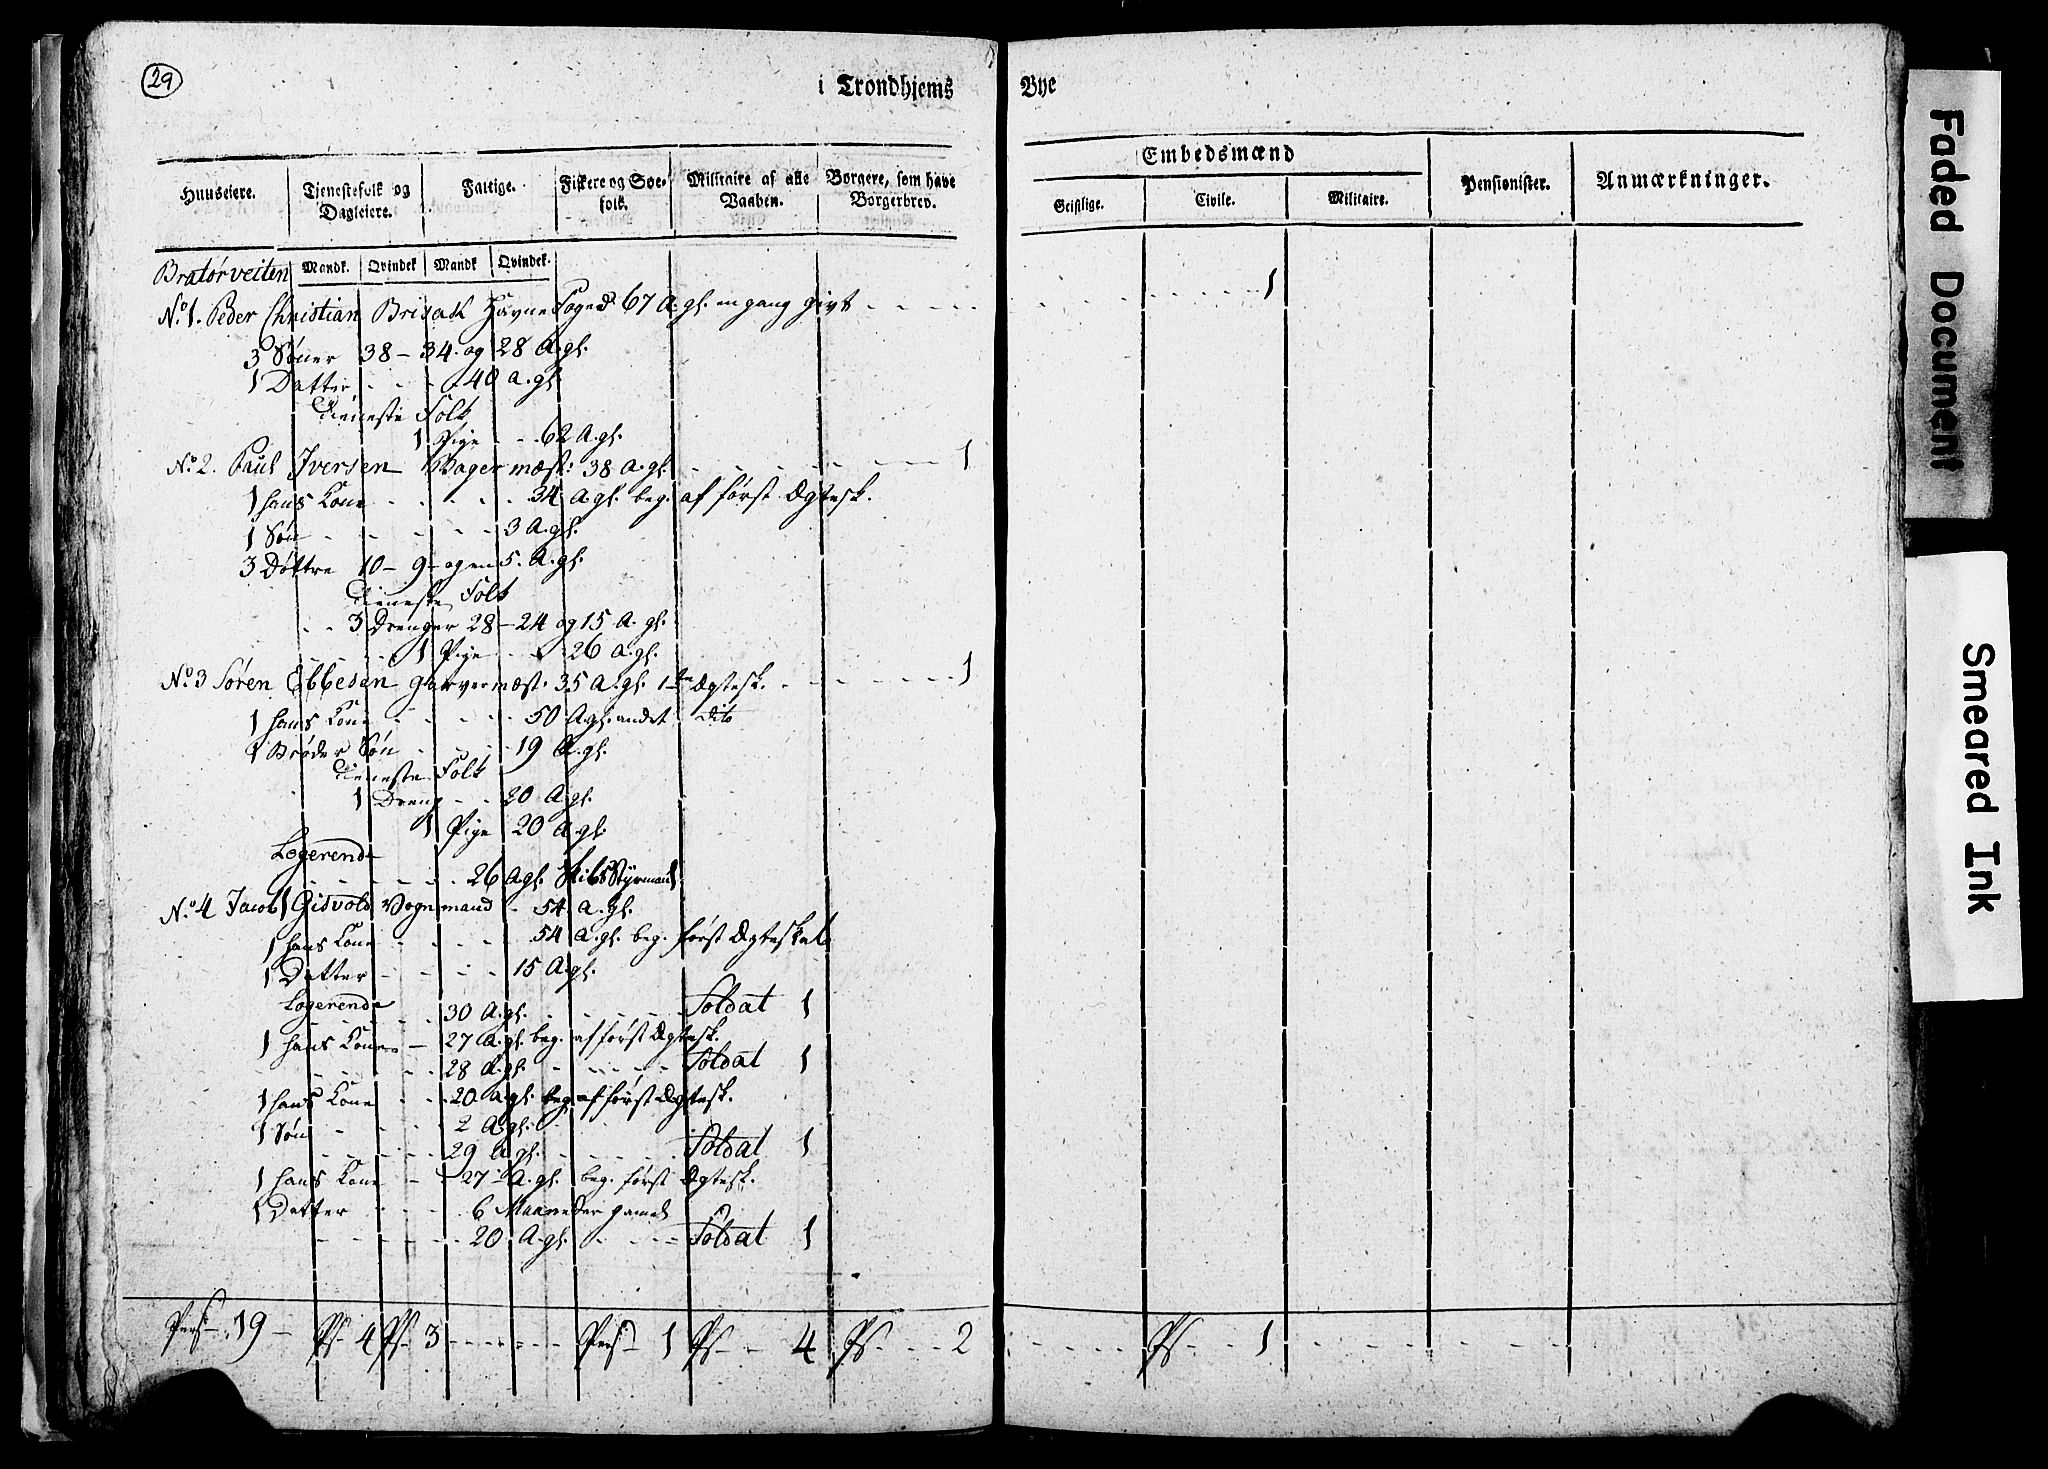 29
i Trondhjems Bye
Huuseiere. Tjenestefolk og Dagleiere. Fattige. Fiskere og Søefolk. Militaire af alle Vaaben. Borgere, som have Borgerbrev. Embedsmænd Geistlige. Civile. Militaire. Pensionister. Anmærkninger.
Mandk. Qvindek Mandk Qvindek.
Bratørveiten
No. 1. Peder Christian Brisack Havne Foged 67 A. gl. en gang givt - - - - 1
3 Sønner 38 - 34 - og 28 A. gl.
1 Datter - - - 40 a. gl.
Tieneste Folk
1 Pige - - 62 A. gl.
No. 2. Paul Iversen Bager mæst: 38 A. gl. - - - - 1
1 hans Kone - - - - 34 A. gl. beg. af først Ægtesk.
1 Søn - - - - 3 A. gl.
3 Døttre 10 - 9 - og en 5. A. gl.
Tieneste Folk
- - 3 Drenger 28 - 24 og 15 A. gl.
1 Pige - - 26 A. gl.
No. 3 Søren Ebbesen garver mæst. 35 A. gl. 1te Ægtesk. - - - - 1
1 hans Kone - - - - 50 A. gl. andet dito
1 Broder Søn - - - 19 A. gl.
Tieneste Folk
1 Dreng - - 20 A. gl.
1 Pige 20 A. gl.
Logerende
- - - - - 26 A. gl. Skibs Styrmand 1
No. 4 Jacob Gisvold Vognmand - 54 A. gl.
1 hans Kone - - - - 54 A. gl. beg. først Ægteskab
1 Datter - - - - 15 A. gl.
Logerende
- - - - 30 A. gl. - - - - Soldat 1
1 hans Kone - - 27 A. gl. beg. af først Ægtesk.
- - - - 28 A. gl. - - - - Soldat 1
1 hans Kone - - 20 A. gl. beg. af først Ægtesk.
1 Søn - - - - 2 A. gl.
- - - - 29 A. gl. - - - - Soldat 1
1 hans Kone - - 27 A. gl. beg. først Ægtesk.
1 Datter - - - - 6 Maaneder gamel
- - - - 20 A. gl. - - - - Soldat 1
Pers: 19 - Ps - 4 Ps - 3 - - - - Pers - 1 Ps - 4 Ps - - - 2 - - - - Ps - - 1 - - - -
Faded Document
Smeared Ink